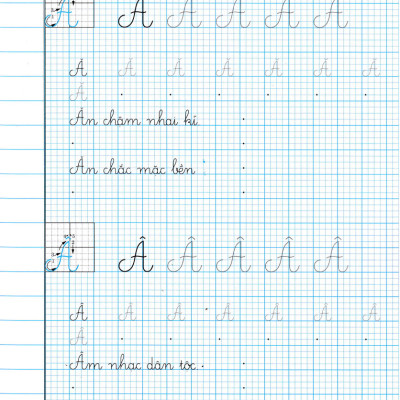 Ă Ă Ă Ă Ă Ă
Ă Ă Ă Ă Ă Ă Ă
Ă
Ăn chậm nhai kĩ
Ăn chắc mặc bền
Â Â Â Â Â Â
Â Â Â Â Â Â Â
Â
Âm nhạc dân tộc